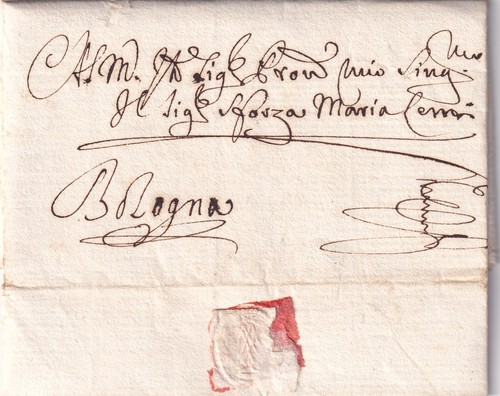 Al M. Ill.e Sig.r Pron mio Sing.mo
Il Sig.r Sforza Maria
Bologna